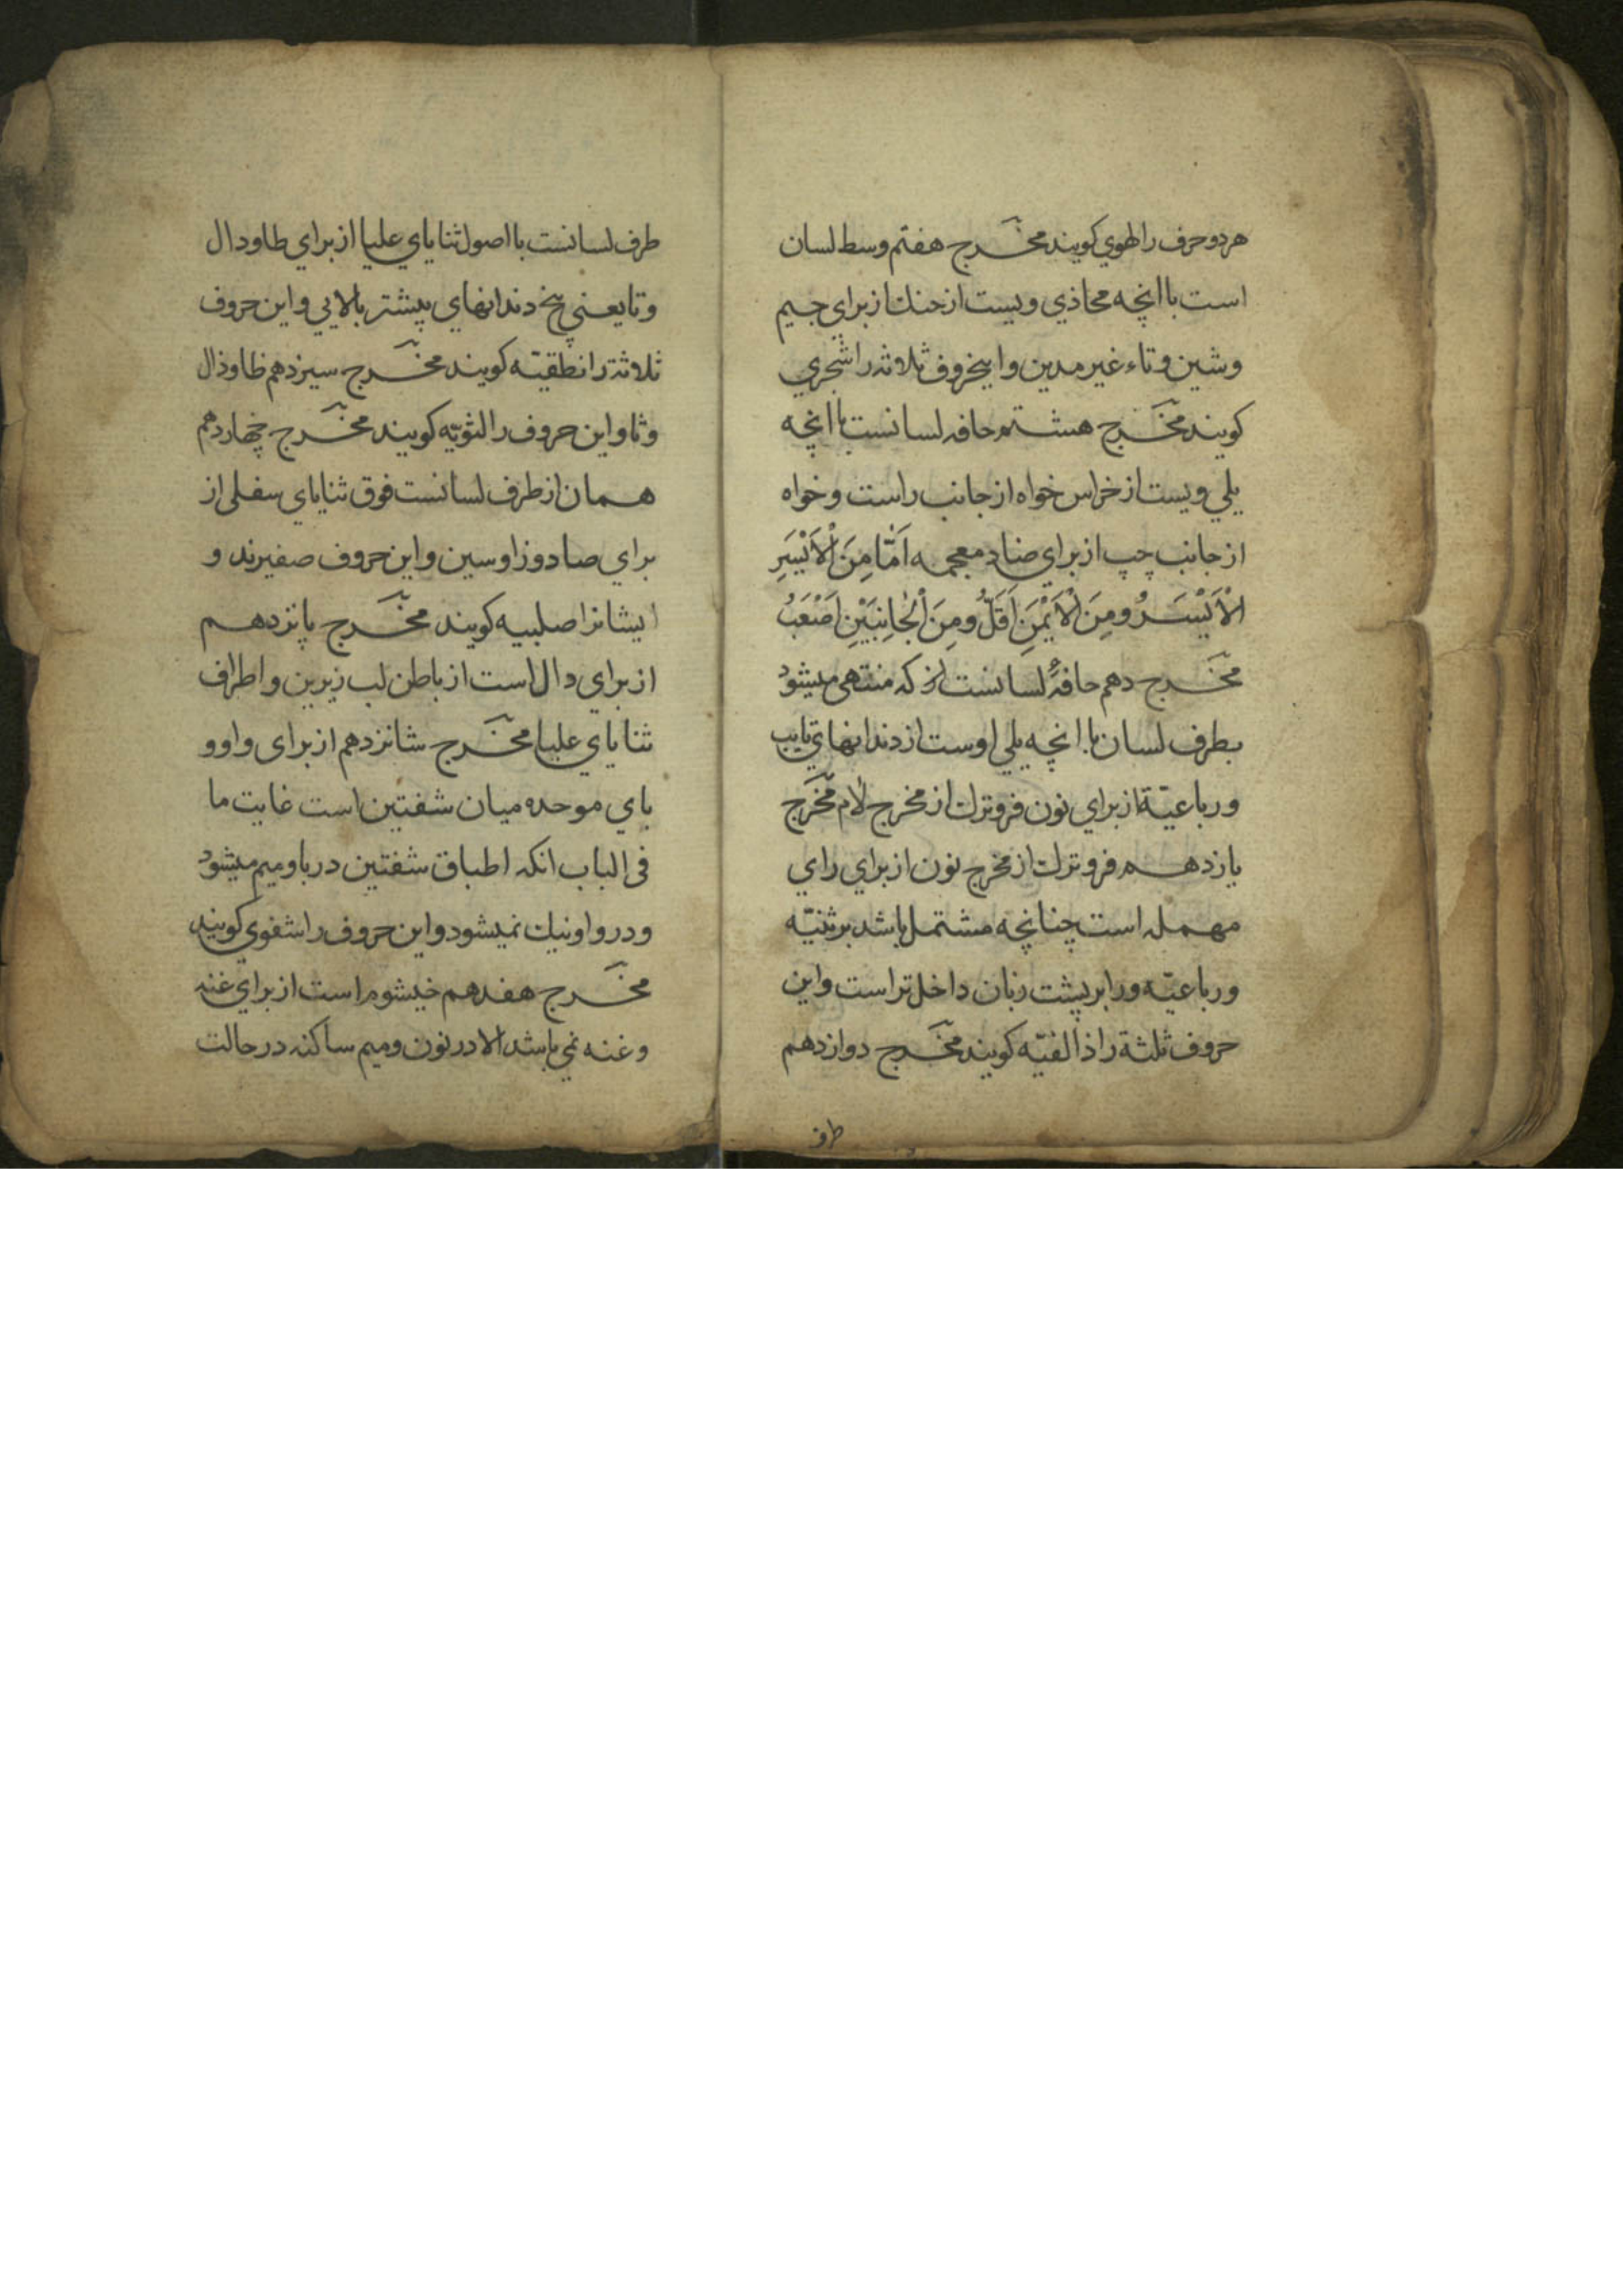 هر دو حرف را لهوي کویند مخرج هفتم وسط لسان
است با انچه محاذي ویست از حنك از براي جیم
و شین و تاء غیر مدین و اینحروف ثلاثه را شجري
کویند مخرج هشتم حافه لسانست با انچه
یلي ویست از خراس خواه از جانب راست و خواه
از جانب چپ از براي ضاد معجمه اَمّا مِنَ الْاَیْسَرِ
الْاَیْسَرُ ومِنَ الْاَیْمَنِ اَقَلُّ ومِنَ الْجَانِبَیْنِ اَصْعَبُ
مخرج دهم حافهٔ لسانست که منتهی میشود
بطرف لسان با انچه یلي اوست از دندانهاي نایب
ورباعیّة از براي نون فروترك از مخرج لام مخرج
یازدهم فروترك از مخرج نون از براي راي
مهمله است چنانچه مشتمل باشد بر ثنیّه
ورباعیّه ورا بر پشت زبان داخل تر است واین
حروف ثلثة را ذالقیّه کویند مخرج دوازدهم
طرف
طرف لسانست با اصول ثنایاي علیا از براي طا ودال
وتا یعني بیخ دندانهاي پیشتر بالایي و این حروف
ثلاثة را نطقیّه کویند مخرج سیزدهم ظا وذال
وثا واین حروف را لثویّه کویند مخرج چهاردهم
همان از طرف لسانست فوق ثنایاي سفلی از
براي صاد وزا وسین واین حروف صفیرند و
ایشانرا صلبیه کویند مخرج پانزدهم
از براي دال است از باطن لب زیرین واطراف
ثنایاي علیا مخرج شانزدهم از برای واو و
باي موحده میان شفتین است غایت ما
فی الباب انکه اطباق شفتین در با ومیم میشود
ودر واو نیك نمیشود واین حروف را شفوي کویند
مخرج هفدهم خیشوم است از براي غنه
وغنه نمي باشد الا در نون ومیم ساکنه در حالت